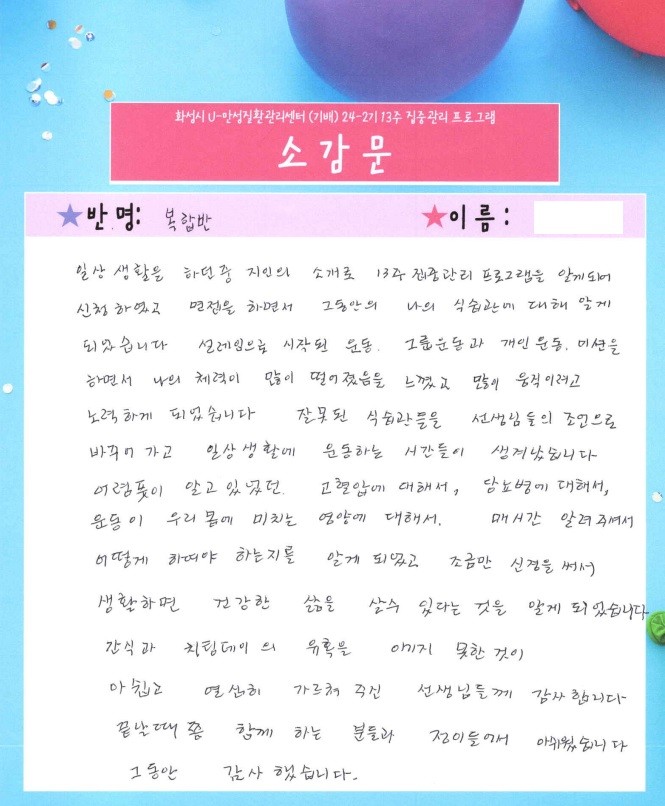 화성시 U-만성질환관리센터 (기배) 24-2기 13주 집중관리 프로그램
소감문
반 명: 복합반 이 름 :
일상 생활을 하던중 지인의 소개로 13주 집중관리 프로그램을 알게되어
신청 하였고 면접을 하면서 그동안의 나의 식습관에 대해 알게
되었습니다 설레임으로 시작된 운동. 그룹운동과 개인운동. 미션을
하면서 나의 체력이 많이 떨어졌음을 느꼈고 많이 움직이려고
노력하게 되었습니다 잘못된 식습관들을 선생님들의 조언으로
바꾸어 가고 일상생활에 운동하는 시간들이 생겨났습니다
어렴풋이 알고 있었던. 고혈압에 대해서, 당뇨병에 대해서,
운동이 우리몸에 미치는 영양에 대해서. 매시간 알려주셔서
어떻게 하여야 하는지를 알게 되었고 조금만 신경을 써서
생활하면 건강한 삶을 살수 있다는 것을 알게 되었습니다
간식과 치팅데이의 유혹을 이기지 못한 것이
아쉽고 열심히 가르쳐 주신 선생님들께 감사합니다
끝날때쯤 함께 하는 분들과 정이들어서 아쉬웠습니다
그동안 감사 했습니다.